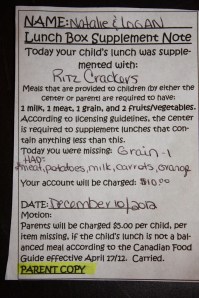 NAME: Natalie & LOGAN
Lunch Box Supplement Note
Today your child's lunch was supple-
mented with:
RITZ CRackers
Meals that are provided to children (by either the
center or parent) are required to have:
1 milk, 1 meat, 1 grain, and 2 fruits/vegetables.
According to licensing guidelines, the center
is required to supplement lunches that con-
tain anything less than this.
Today you were missing: Grain-1
HAD:
meat, potatoes, milk, carrots, orange
Your account will be charged: $10.00
DATE: December 10/2012
Motion:
Parents will be charged $5.00 per child, per
item missing, if the child's lunch is not a bal-
anced meal according to the Canadian Food
Guide effective April 17/12. Carried.
PARENT COPY